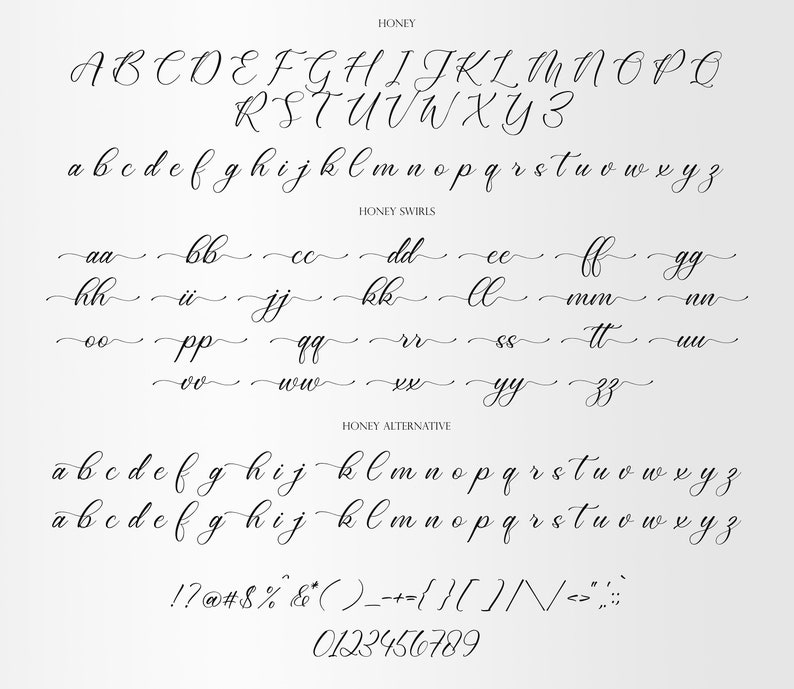 HONEY
A B C D E F G H I J K L M N O P Q
R S T U V W X Y Z
a b c d e f g h i j k l m n o p q r s t u v w x y z
HONEY SWIRLS
aa bb cc dd ee ff gg
hh ii jj kk ll mm nn
oo pp qq rr ss tt uu
vv ww xx yy zz
HONEY ALTERNATIVE
a b c d e f g h i j k l m n o p q r s t u v w x y z
a b c d e f g h i j k l m n o p q r s t u v w x y z
!?@#$%^&*( )_-+={ }[ ]/\\/<>"',.:;`
0123456789